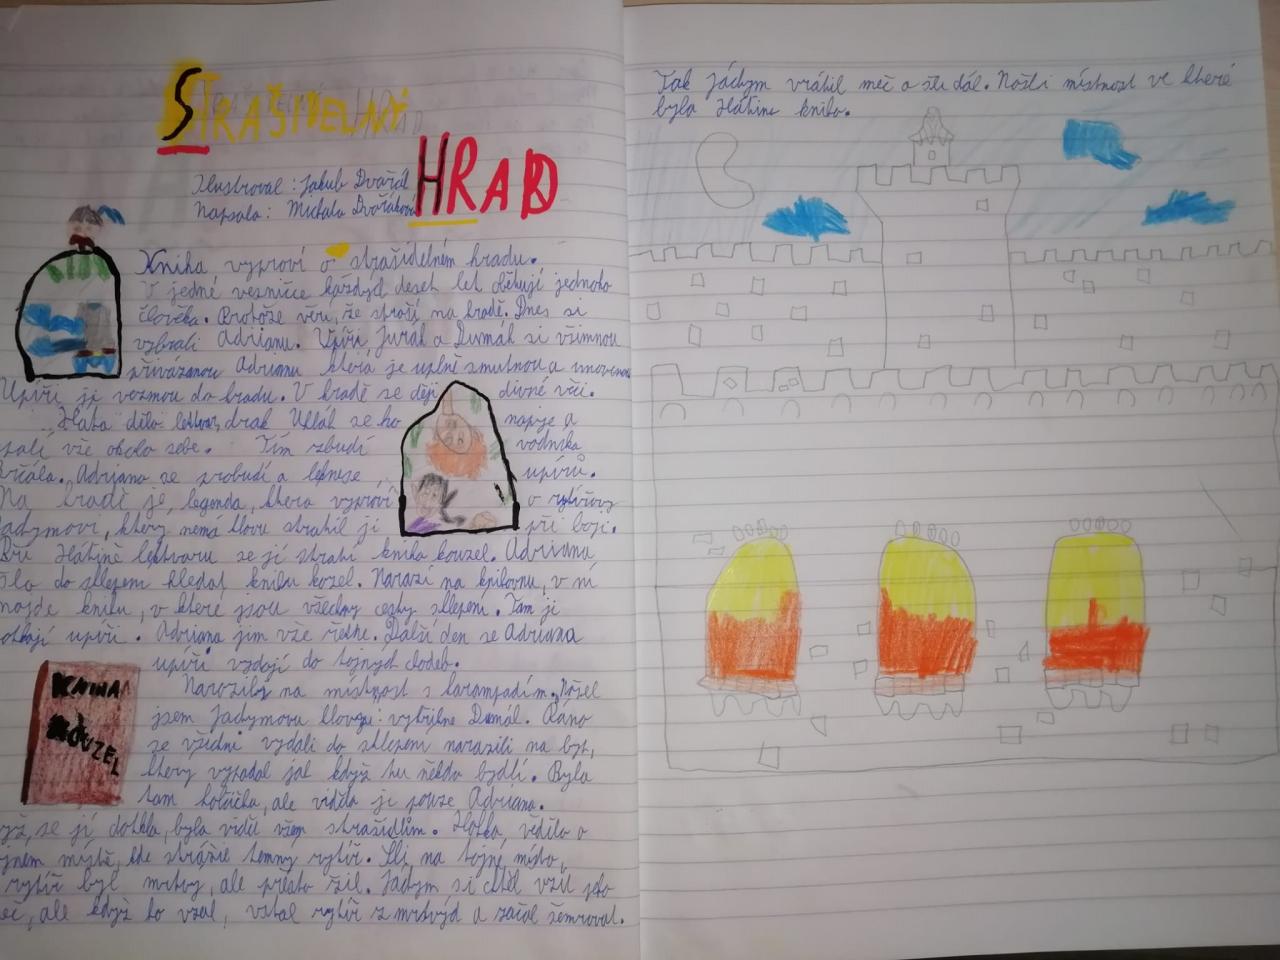 STRAŠIDELNÝ
HRAD
Ilustroval : Jakub Dvořák
Napsala : Michala Dvořáková
Kniha vypraví o strašidelném hradu.
V jedné vesničce každých deset let obětují jednoho
člověka. Protože věří, že straší na hradě. Dnes si
vybrali Adrianu. Upíři Jurák a Dumák si všimnou
přivázanou Adrianu která je uplně smutnou a unavenou
Upíři ji vezmou do hradu. V hradě se ději divné věci.
Háta dělá lektvar, drak Ulláh se ho napije a
spálí vše okolo sebe. Tím vzbudí vodníka
Brčála. Adriana se probudí a lekne se upírů.
Na hradě je, legenda, ktera vypraví o rytířovy
Jadymovi, ktery nemá hlavu stratil ji při boji.
Při Hátině lektvaru se jí strati kniha kouzel. Adriana
šla do sklepem hledat knihu kozel. Narazí na knihovnu, v ní
najde knihu, v které jsou všechny cesty sklepení. Tam ji
potkají upíři. Adriana jim vše řekne. Další den se Adriana
upíři vydají do tajných chodeb.
Narazily na místnost s harampádím. Našel
jsem Jadymovu hlavu: vykřikne Dumák. Ráno
se všichni vydali do sklepení narazili na byt,
ktery vypadal jak když tu někdo bydlí. Byla
tam holčička, ale viděla ji pouze Adriana.
se jí dotkla, byla vidět všem strašidlům. Hátka, věděla o
místě, kde strážie temny rytíř. Šli na tajné místo,
rytíř byl mrtvy, ale přesto žil. Jadym si chtěl vzít jeho
ale když ho vzal, vstal rytíř z mrtvých a začal šermovat.
KNIHA
KOUZEL
Tak Jádym vrátil meč a šli dál. Našli místnost ve které
byla Hátina kniha.